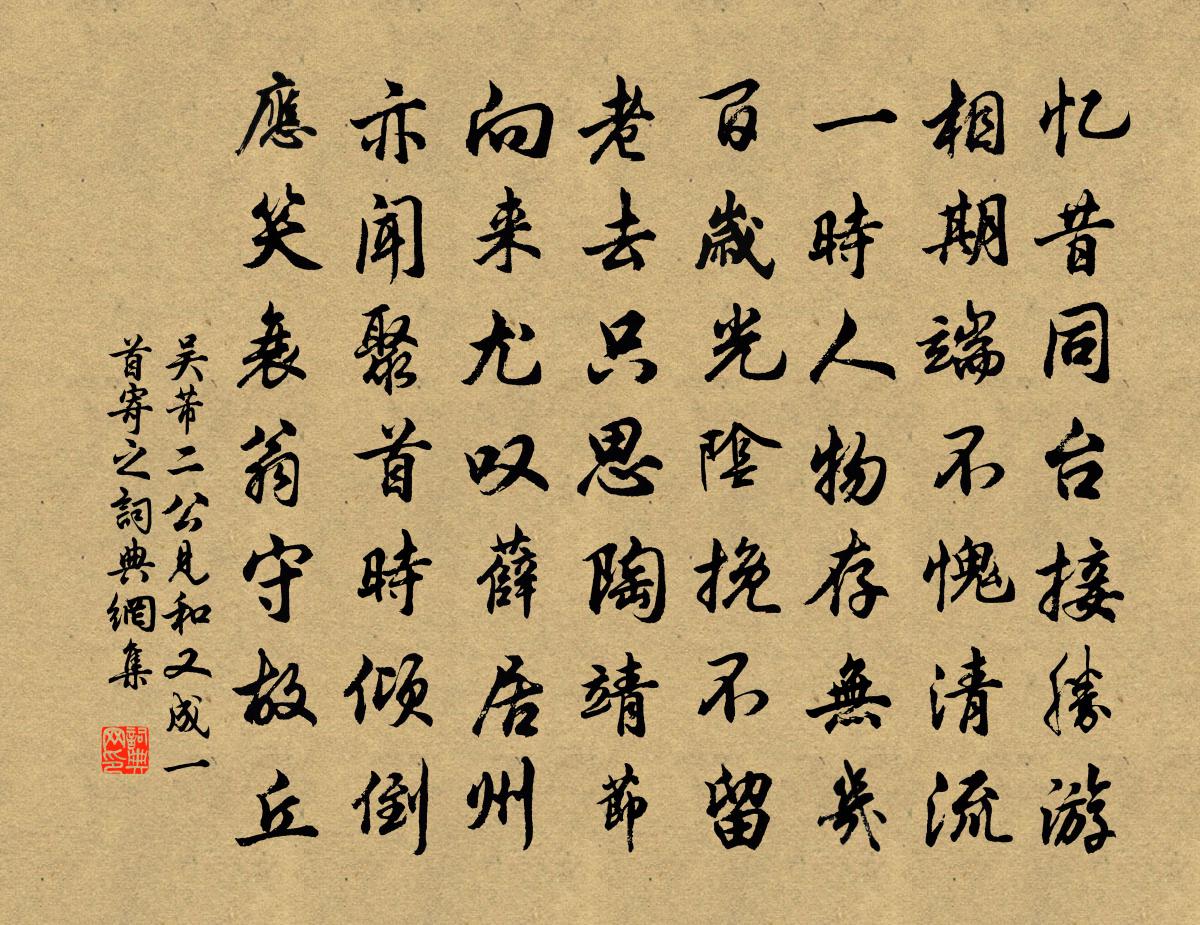 忆昔同台接勝游
相期端不愧清流
一時人物存無幾
百歲光陰挽不留
老去只思陶靖節
向来尤叹薛居州
亦闻聚首時倾倒
應笑衰翁守故丘
吴芾二公見和又成一
首寄之詞典網集
詞典网印